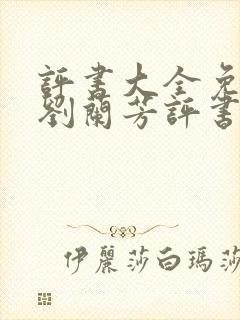 評書大全免
劉蘭芳評書
伊麗莎白瑪莎